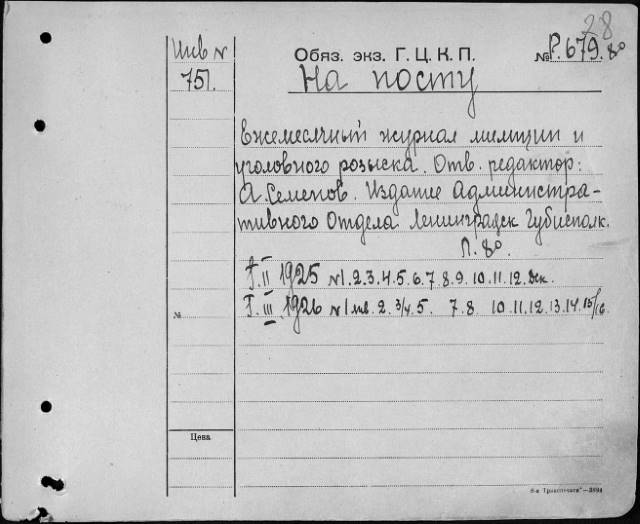 28
Инв №
Обяз. экз. Г. Ц. К. П.
№ Р. 679. 8º
751.
На посту
Ежемесячный журнал милиции и
уголовного розыска. Отв. редактор:
А. Семенов. Издание Администра-
тивного Отдела Ленинградск Губисполк.
Л. 8º.
Г. II 1925 №1.2.3.4.5.6.7.8.9.10.11.12. дек.
Г. III. 1926 №1 янв. 2. 3/4. 5. 7.8. 10.11.12.13.14.15/16
№
Цена